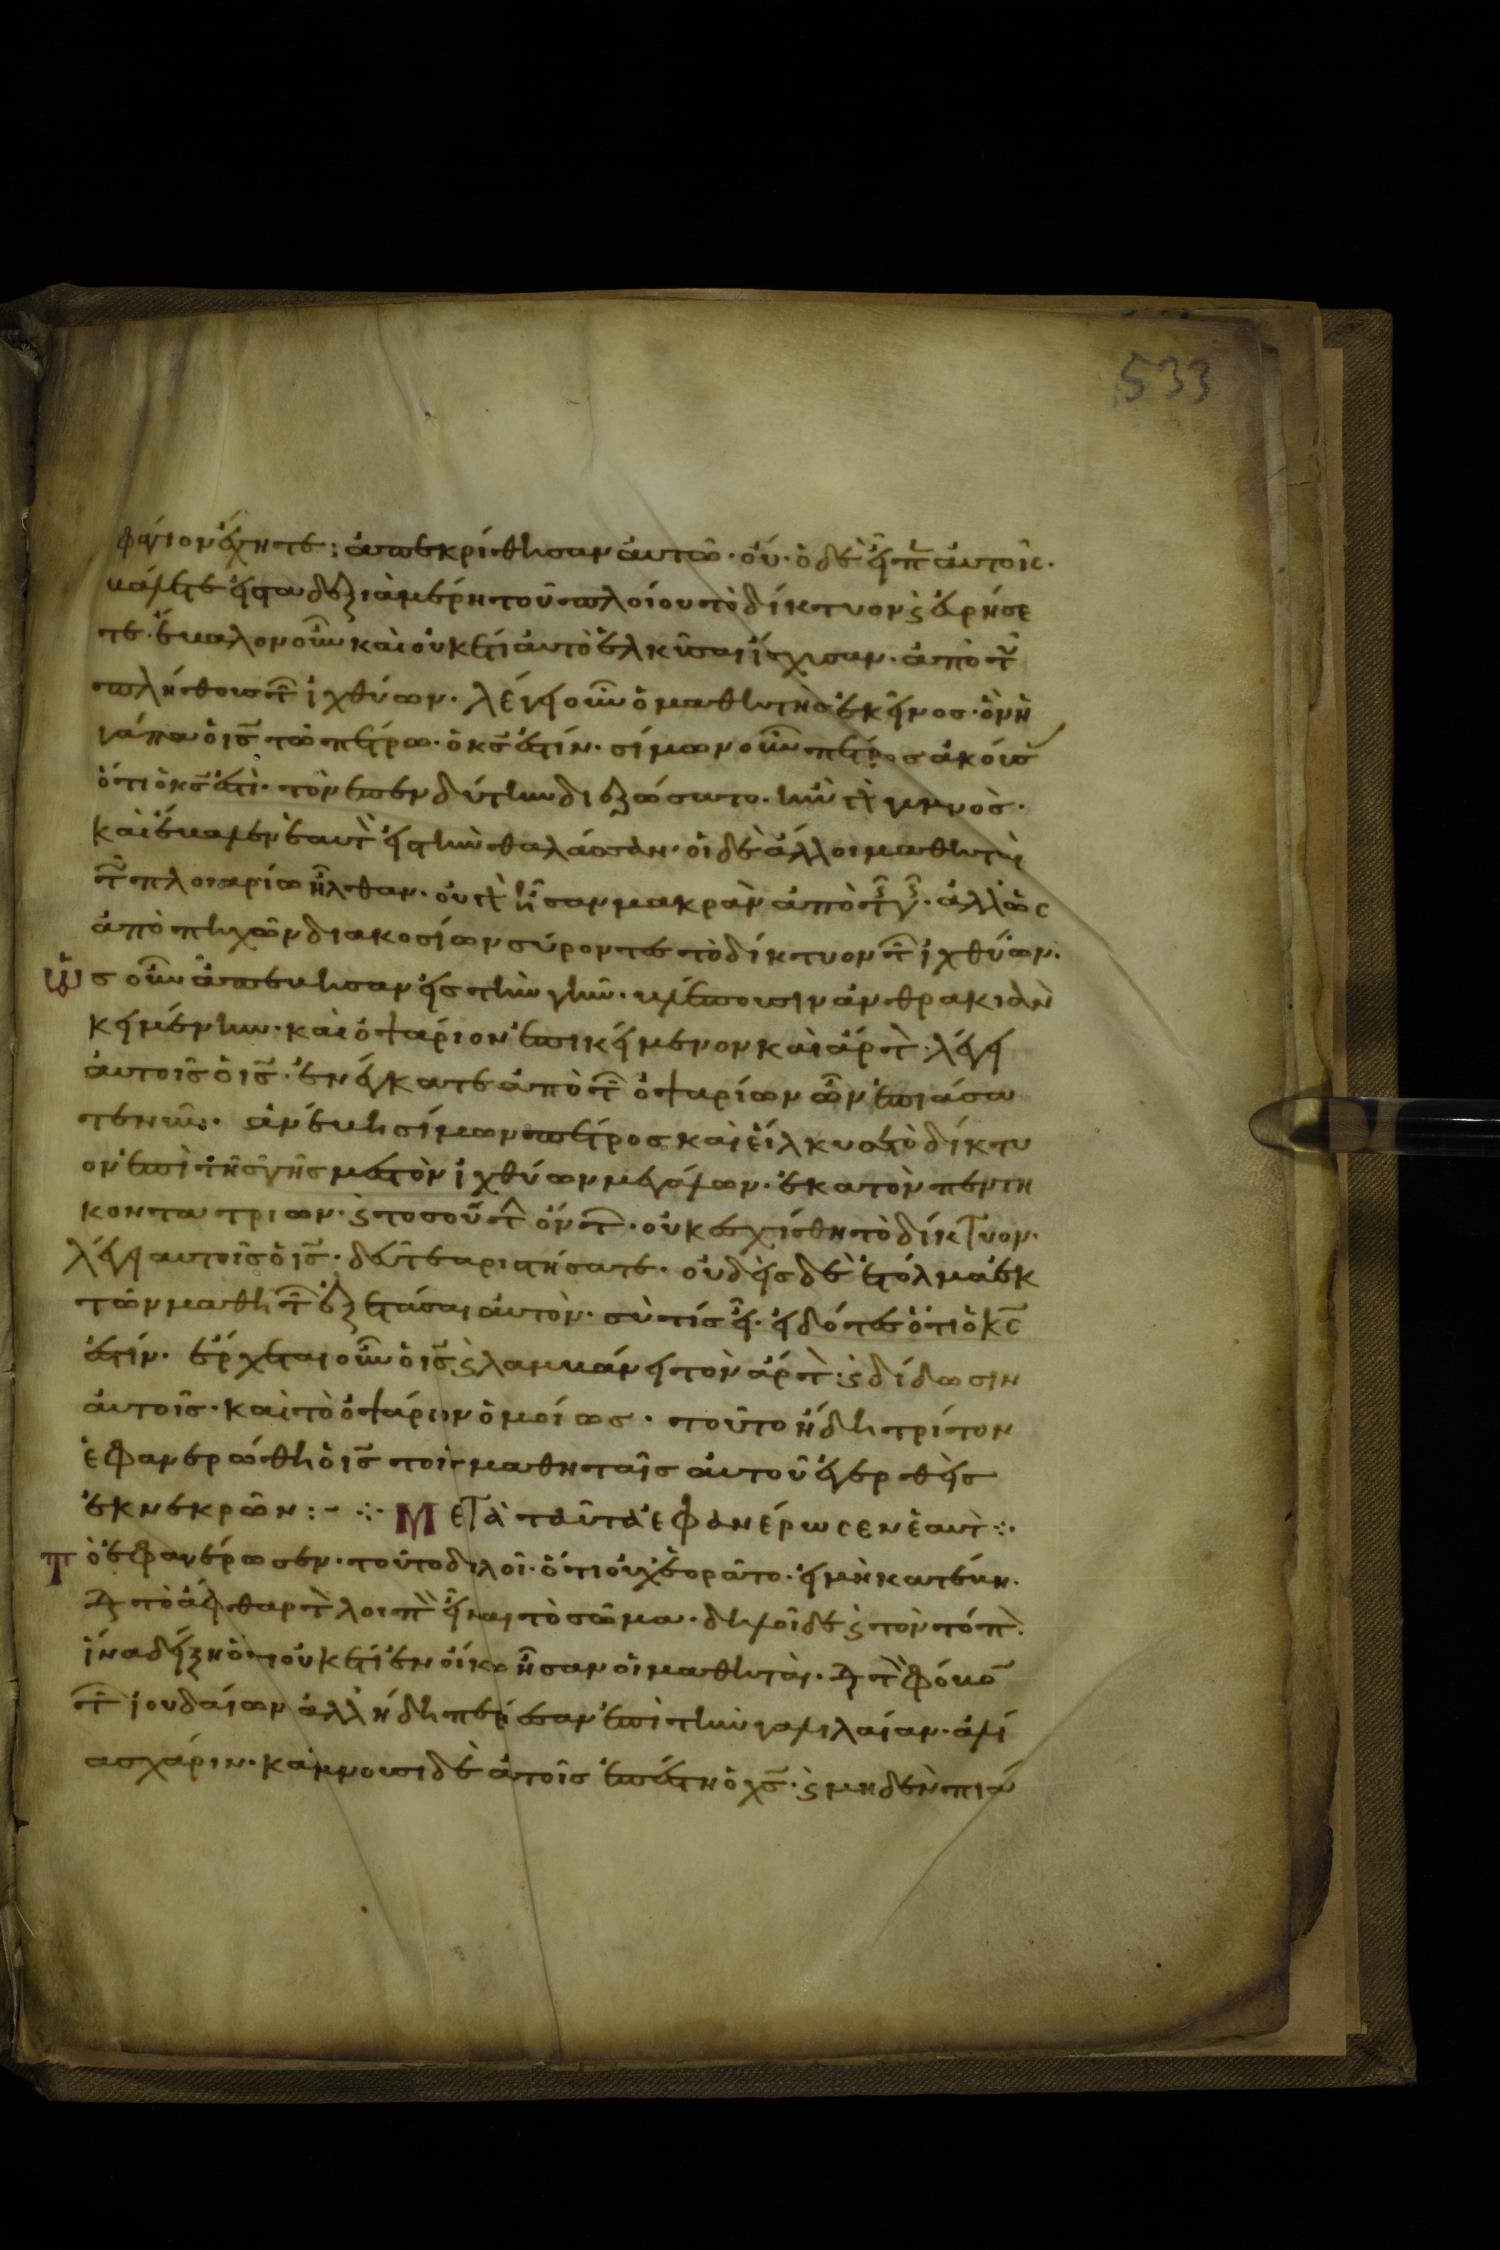 533
φάγιον ἔχητε; ἀπεκρίθησαν αὐτῶ· οὔ· ὁ δὲ εἶπ αὐτοῖς·
βάλετε εἰς τα δεξιὰ μέρη τοῦ πλοίου τὸ δίκτυον ϛ εὑρήσε
τε· ἔβαλον οὖν καὶ οὐκέτι αὐτὸ ἑλκῦσαι ἴσχυσαν· ἀπὸ τοῦ
πλήθους τῶν ἰχθύων· λέγει οὖν ὁ μαθητὴς ἐκεῖνος· ὃν ἠ
γάπα ὁ ις τῶ πέτρω· ὁ κς ἐστίν· σίμων οὖν πέτρος ἀκούσ
ὅτι ὁ κς ἐστὶ· τὸν ἐπενδύτην διεζώσατο· ἦν γὰρ γυμνὸς·
καὶ ἔβαλεν ἑαυτὸν εἰς τὴν θαλάσσαν· οἱ δὲ ἄλλοι μαθηταὶ
τῶ πλοιαρίω ἦλθαν· οὐ γὰρ ἦσαν μακρὰν ἀπὸ τῆς γῆς· ἀλλ ὡς
ἀπὸ πηχῶν διακοσίων σύροντες τὸ δίκτυον τῶν ἰχθύων·
ὡς οὖν ἀπέβησαν εἰς τὴν γῆν· βλέπουσιν ἀνθρακιὰν
κειμένην· καὶ ὀψάριον ἐπικείμενον καὶ ἄρτον· λέγει
αὐτοῖς ὁ ις· ἐνέγκατε ἀπὸ τῶν ὀψαρίων ὧν ἐπιάσα
τε νῦν· ἀνέβη σίμων πέτρος καὶ εἵλκυσε τὸ δίκτυ
ον ἐπὶ τῆς γῆς μεστὸν ἰχθύων μεγάλων· ἑκατὸν πεντή
κοντα τριων· ϛ τοσούτων ὄντων· οὐκ ἐσχίσθη τὸ δίκτυον·
λέγει αυτοῖς ὁ ις· δεῦτε αριστήσατε· οὐδεὶς δὲ ἐτόλμα ἐκ
τῶν μαθητῶν ἐξετάσαι αὐτὸν· σὺ τίς εἶ· εἰδότες ὅτι ὁ κς
ἐστίν· ἔρχεται οὖν ὁ ις ϛ λαμβάνει τὸν ἄρτον· ϛ δίδωσιν
αὐτοῖς· καὶ τὸ ὀψάριον ὁμοίως· τοῦτο ἤδη τρίτον
ἐφανερώθη ὁ ις τοῖς μαθηταῖς αὐτοῦ ἐγερθεὶς
ἐκ νεκρῶν:- ⁘ Μετὰ ταῦτα ἐφανέρωσεν ἑαυτὸν ⁘
Τὸ ἐφανέρωσεν· τοῦτο δηλοῖ· ὅτι οὐχ ἑορᾶτο· εἰ μὴ κατέβη·
διὰ τὸ ἄφθαρτον λοιπὸν εἶναι τὸ σῶμα· δηλοῖ δὲ ϛ τὸν τόπον·
ἵνα δείξη ὅτι οὐκέτι ἐν οἴκω ἦσαν οἱ μαθηταὶ· διὰ τὸν φόβον
τῶν ἰουδαίων ἀλλ ἤδη πεσαν ἐπὶ τὴν γαλιλαίαν· ἁλεί
ας χάριν· κάμνουσι δὲ αὐτοῖς ἐπέστη ὁ χς· ϛ μηδὲν πιά